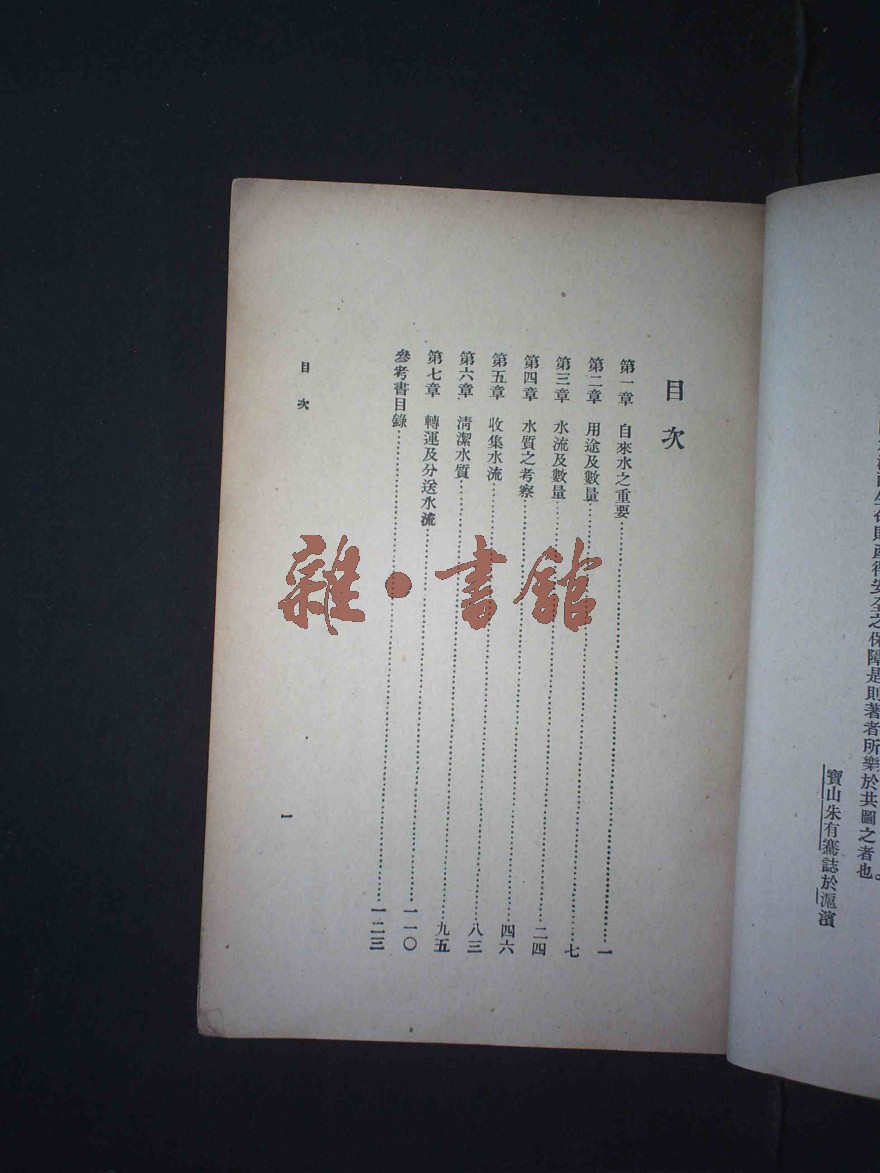 是則著者所樂於共圖之者也。
寶山朱有騫誌於滬濱
目次
第一章 自來水之重要……一
第二章 用途及數量……七
第三章 水流及數量……二四
第四章 水質之考察……四六
第五章 收集水流……八三
第六章 清潔水質……九五
第七章 轉運及分送水流……一一〇
參考書目錄……一二三
目次
一
雜·書館